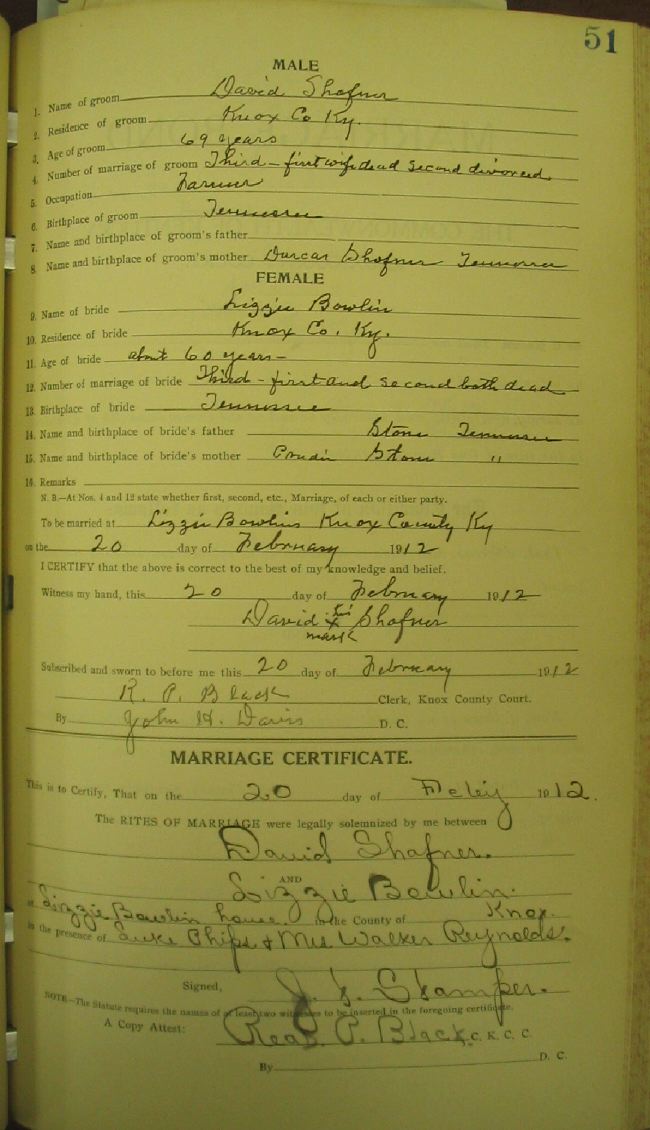 51
MALE
1. Name of groom David Shafner
2. Residence of groom Knox Co Ky.
3. Age of groom 69 years
4. Number of marriage of groom Third - first wife dead second divorced
5. Occupation Farmer
6. Birthplace of groom Tennessee
7. Name and birthplace of groom's father
8. Name and birthplace of groom's mother Darcas Shofner Tennessee
FEMALE
9. Name of bride Lizzie Bowlin
10. Residence of bride Knox Co. Ky.
11. Age of bride about 60 years -
12. Number of marriage of bride Third - first and second both dead
13. Birthplace of bride Tennessee
14. Name and birthplace of bride's father Stone Tennessee
15. Name and birthplace of bride's mother Stone "
16. Remarks
N. B.—At Nos. 4 and 12 state whether first, second, etc., Marriage, of each or either party.
To be married at Lizzie Bowlins Knox County Ky
on the 20 day of February 1912
I CERTIFY that the above is correct to the best of my knowledge and belief.
Witness my hand, this 20 day of February 1912
David his x mark Shofner
Subscribed and sworn to before me this 20 day of February 1912
R. P. Black Clerk, Knox County Court.
By John H. Davis D. C.
MARRIAGE CERTIFICATE.
This is to Certify, That on the 20 day of Feby 1912.
The RITES OF MARRIAGE were legally solemnized by me between
David Shafner.
AND
Lizzie Bowlin.
at Lizzie Bowlin house in the County of Knox.
in the presence of Luke Phips & Mrs Walker Reynolds.
Signed, J. F. Stamper.
NOTE—The Statute requires the names of at least two witnesses to be inserted in the foregoing certificate.
A Copy Attest: Read P. Black, C. K. C. C.
By D. C.